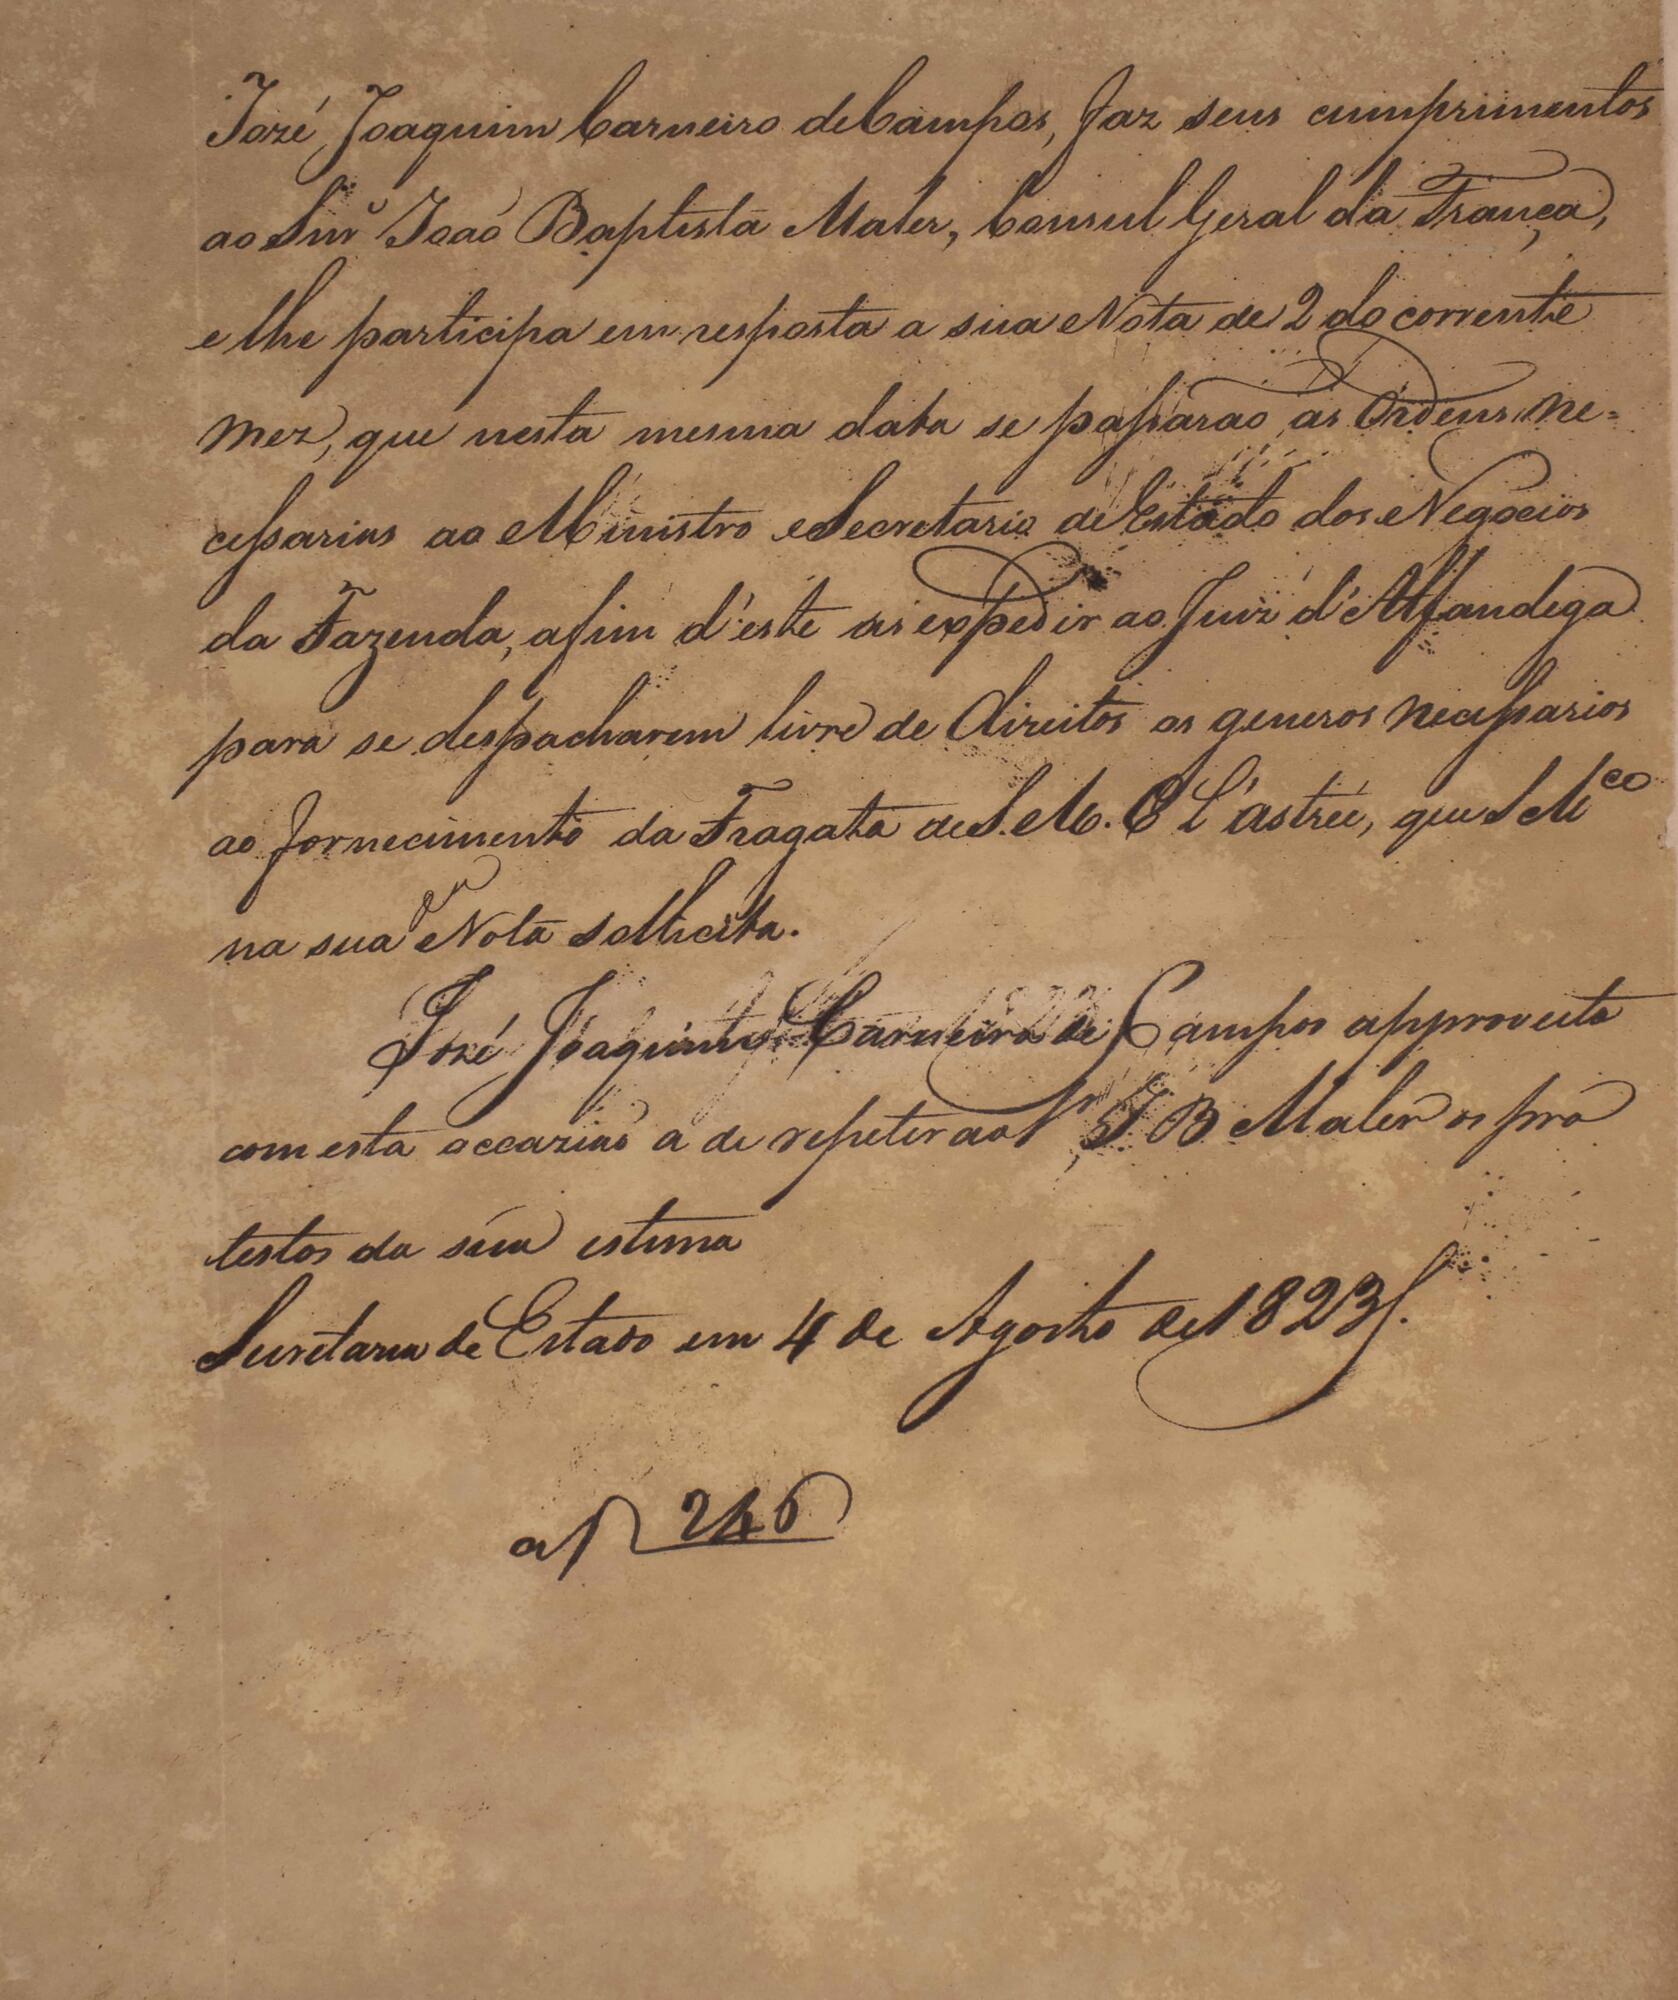 Jozé Joaquim Carneiro de Campos, faz seus cumprimentos
ao Snr̃ João Baptista Maler, Consul Geral da França,
e lhe participa em resposta a sua Nota de 2 do corrente
mez, que nesta mesma data se passarão as Ordens ne=
cessarias ao Ministro e Secretario de Estado dos Negocios
da Fazenda, afim d'este as expedir ao Juiz d'Alfandega
para se despacharem livre de Direitos os generos necessarios
ao fornecimento da Fragata de S. M. C L'astrée, que S M.ce
na sua Nota sollicita.
Jozé Joaquim Carneiro de Campos approveita
com esta occazião a de repetir ao Snr J B Maler os pro
testos da sua estima
Secretaria de Estado em 4 de Agosto de 1823.
246